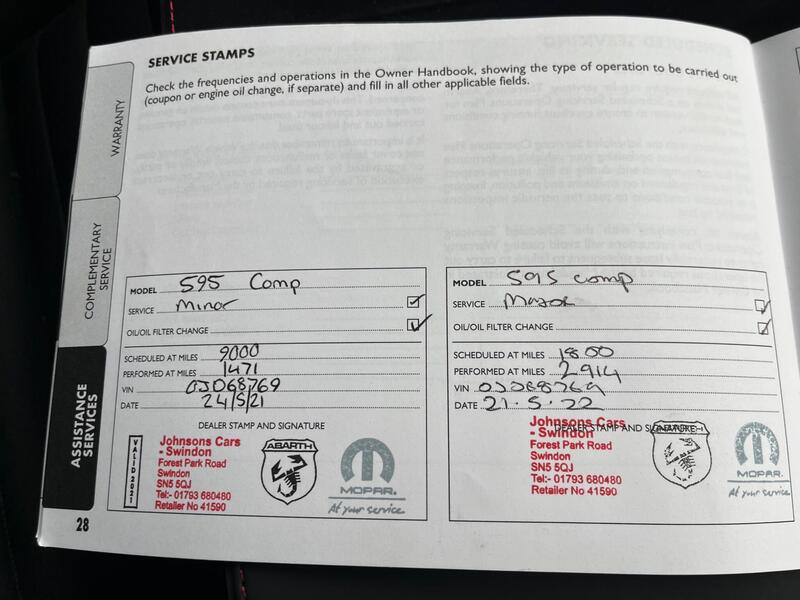 SERVICE STAMPS
Check the frequencies and operations in the Owner Handbook, showing the type of operation to be carried out
(coupon or engine oil change, if separate) and fill in all other applicable fields.
WARRANTY
COMPLEMENTARY
SERVICE
ASSISTANCE
SERVICES
MODEL 595 Comp
SERVICE Minor
OIL/OIL FILTER CHANGE
SCHEDULED AT MILES 9000
PERFORMED AT MILES 1471
VIN 0JD68769
DATE 24/5/21
DEALER STAMP AND SIGNATURE
VALID 2021
Johnsons Cars
- Swindon
Forest Park Road
Swindon
SN5 5QJ
Tel:- 01793 680480
Retailer No 41590
ABARTH
MOPAR.
At your service
MODEL 595 comp
SERVICE Major
OIL/OIL FILTER CHANGE
SCHEDULED AT MILES 1800
PERFORMED AT MILES 2914
VIN
DATE 21.5.22
DEALER STAMP AND SIGNATURE
Johnsons Cars
- Swindon
Forest Park Road
Swindon
SN5 5QJ
Tel:- 01793 680480
Retailer No 41590
ABARTH
MOPAR.
At your service
28